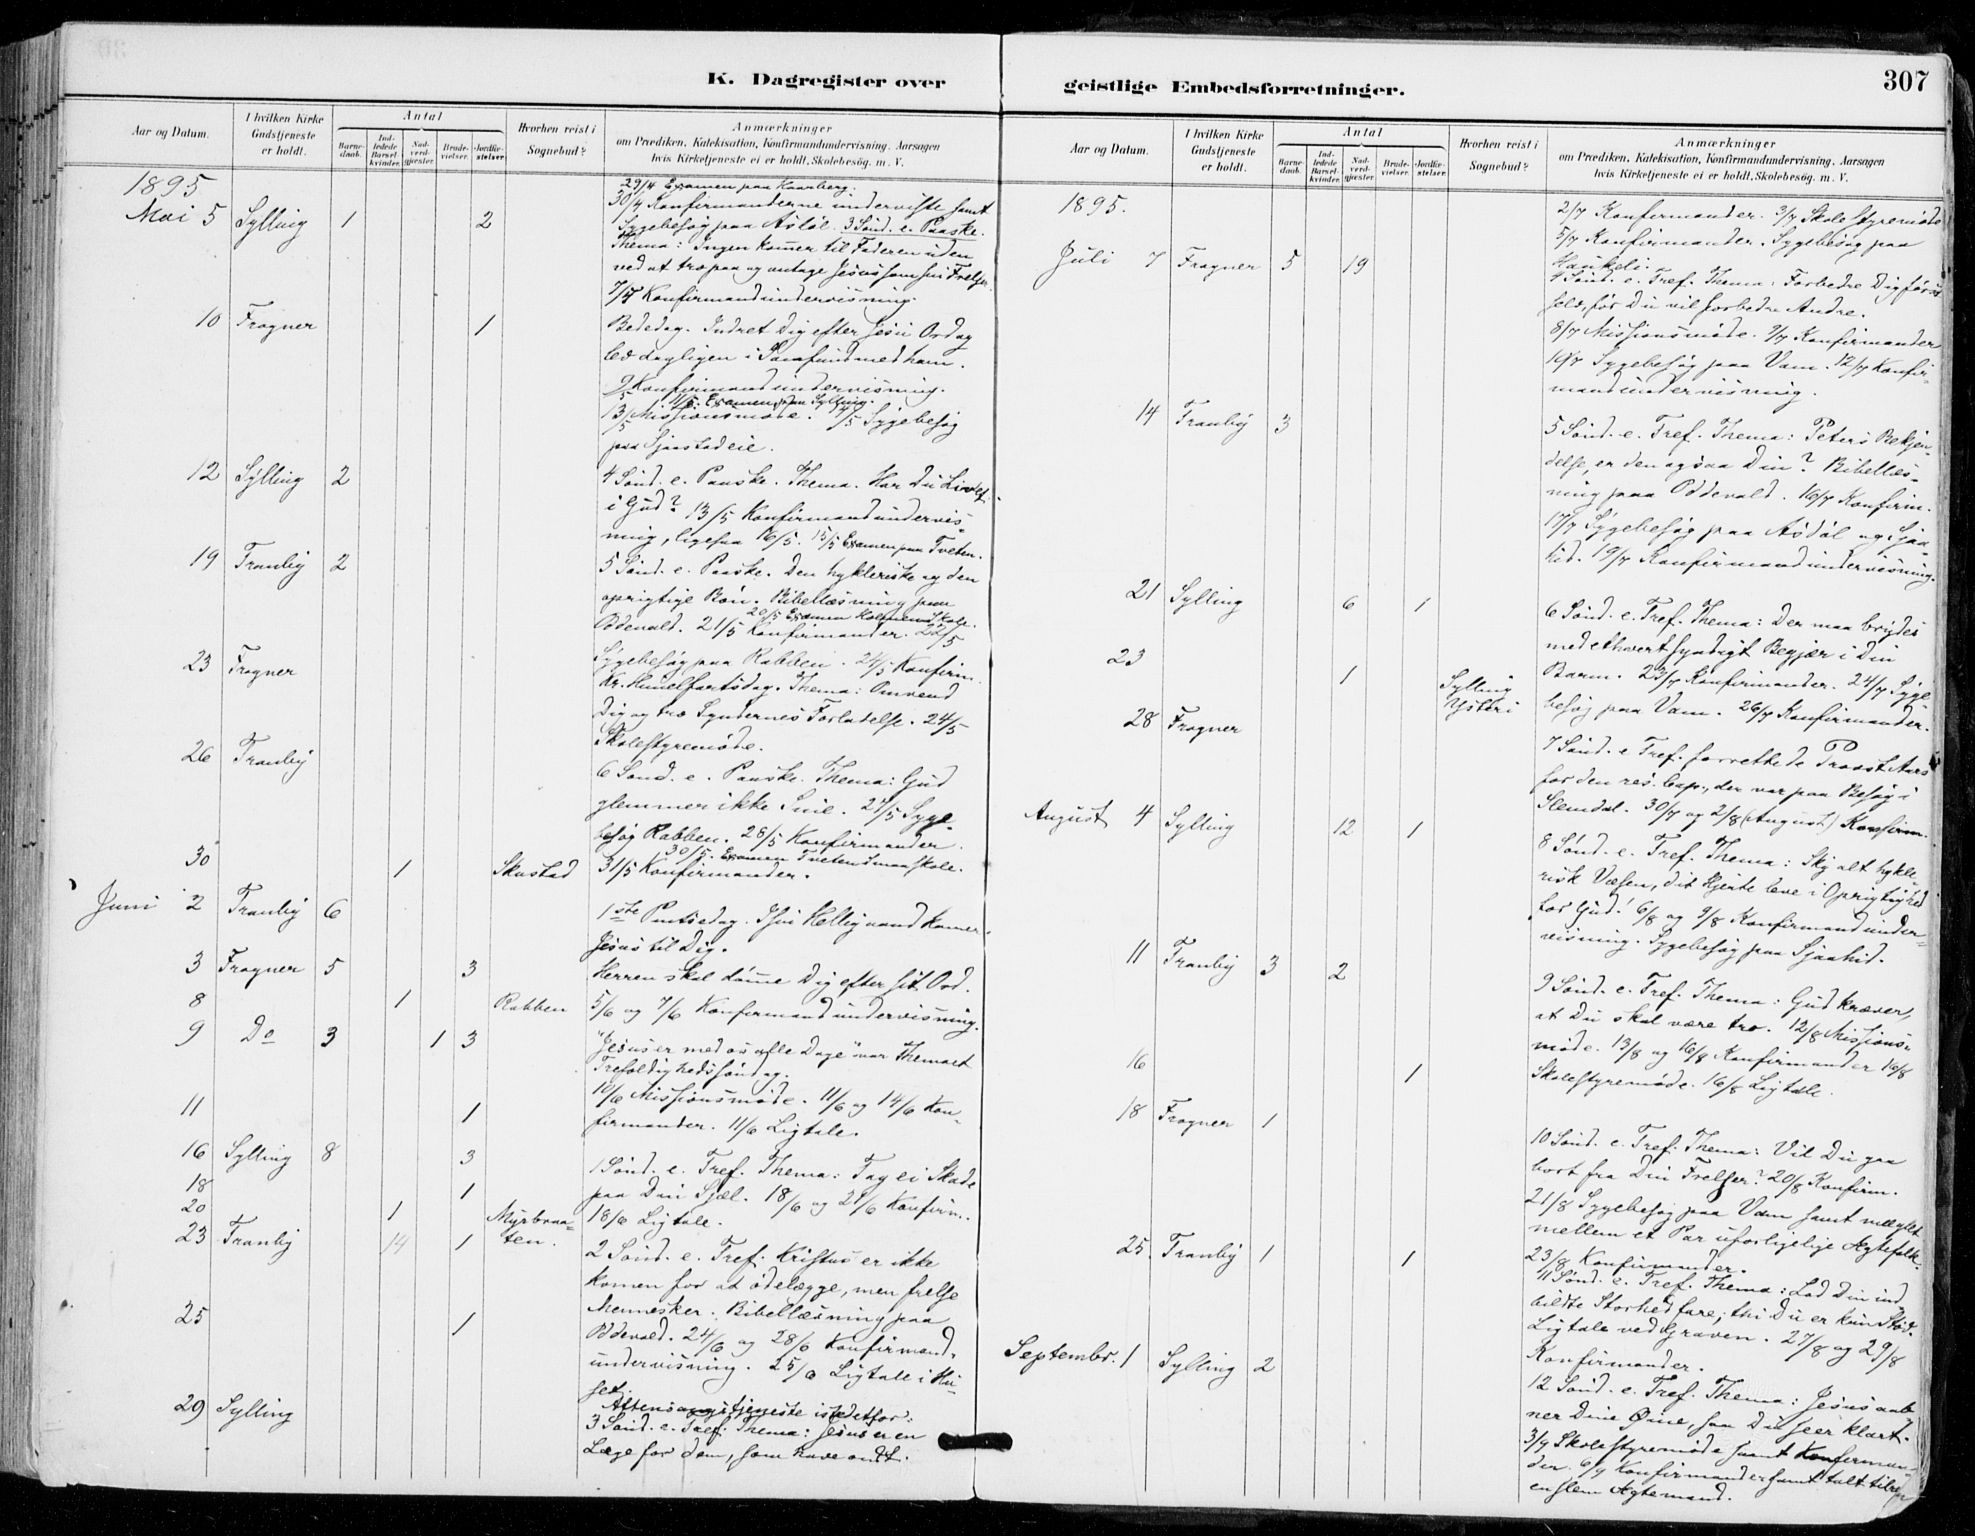 307
K. Dagregister over geistlige Embedsforretninger.
Aar og Datum.
I hvilken Kirke Gudstjeneste er holdt.
Antal
Barne-daab.
Ind-ledede Barsel-kvinder.
Nad-verd-gjester.
Brude-vielser.
Jordfæ-stelser.
Hvorhen reist i Sognebud?
Anmærkninger
om Prædiken, Katekisation, Konfirmandundervisning, Aarsagen
hvis Kirketjeneste ei er holdt, Skolebesög. m. V.
1895
29/4 Examen paa Kaasberg.
Mai 5 Sylling 1 2
30/4 Konfirmanderne underviste samt
Sygebesøg paa Asdøl. 3 Sönd. e. Paaske.
Thema: Ingen komer til Faderen uden
ved at tro paa og antage Jesus som sin Frelser.
7/5 Konfirmandundervisning.
10 Frogner 1
Bededag. Indret Dig efter Jesu Ord og
lev dagligen i Samfund med ham.
9/5 Konfirmandundervisning.
11/5. Examen paa Sylling.
13/5 Missionsmøde. 14/5 Sygebesøg
paa Gjærstadeie.
12 Sylling 2
4 Sönd. e. Paaske. Thema. Har Du Livet
i Gud? 13/5 Konfirmandundervis-
ning, ligesaa 16/5. 15/5 Examen paa Tveten.
19 Tranby 2
5 Sönd. e. Paaske. Den hykleriske og den
oprigtige Bön. Bibellæsning paa
20/5 Examen Holmens Skole.
Oddevald. 21/5 Konfirmander. 22/5
Sygebesøg paa Rabben. 24/5 Konfirm.
23 Frogner
Kr. Himelfartsdag. Thema: Omvend
Dig og tro Syndernes Forladelse. 24/5
Skolestyremøde.
26 Tranby
6 Sönd. e. Paaske. Thema: Gud
glemmer ikke Sine. 27/5 Syge-
besøg Rabben. 28/5 Konfirmander.
30/5. Examen Tvetens Smaaskole.
30 1 Skustad
31/5 Konfirmander.
Juni 2 Tranby 6
1ste Pintsedag. I sin Hellig aand komer
Jesus til Dig.
3 Frogner 5 3
Herren skal dömme Dig efter sit Ord.
8 1 Rabben
5/6 og 7/6 Konfirmandundervisning.
9 Do 3 1 3
"Jesus er med os alle Dage" var Themaet
Trefoldighedssöndag.
10/6 Missionsmøde. 11/6 og 14/6 Kon-
11 1
firmander. 11/6 Ligtale.
16 Sylling 8 3
1 Sönd. e. Tref. Thema: Tag ei Skade
18 1
paa Din Sjæl. 18/6 og 21/6 Konfirm.
20 1 Myrbraa-
ten.
18/6 Ligtale.
23 Tranby 14 1
2 Sönd. e. Tref. Kristus er ikke
komen for at ödelægge, men frelse
Mennesker. Bibellæsning paa
25 1
Oddevald. 24/6 og 28/6 Konfirmand-
undervisning. 25/6 Ligtale i Hu-
set.
29 Sylling
Aftensangstjeneste istedetfor:
3 Sönd. e. Tref. Thema: Jesus er en
Læge for dem, som have ondt.
Aar og Datum.
I hvilken Kirke Gudstjeneste er holdt.
Antal
Barne-daab.
Ind-ledede Barsel-kvinder.
Nad-verd-gjester.
Brude-vielser.
Jordfæ-stelser.
Hvorhen reist i Sognebud?
Anmærkninger
om Prædiken, Katekisation, Konfirmandundervisning, Aarsagen
hvis Kirketjeneste ei er holdt, Skolebesög. m. V.
1895.
2/7 Konfirmander. 3/7 Skolestyremøde
5/7 Konfirmander. Sygebesøg paa
Haukeli.
Juli 7 Frogner 5 19
4 Sönd. e. Tref. Thema: Forbedre Dig først
selv, för Du vil forbedre Andre.
8/7 Missionsmøde. 9/7 Konfirmander
10/7 Sygebesøg paa Vam. 12/7 Konfir-
mandundervisning.
14 Tranby 3
5 Sönd. e. Tref. Thema: Peters Bekjen-
delse, er den ogsaa Din? Bibellæs-
ning paa Oddevald. 16/7 Konfirm.
17/7 Sygebesøg paa Asdøl og Sjaa-
hid. 19/7 Konfirmandundervisning.
21 Sylling 6 1
6 Sönd. e. Tref. Thema: Der maa brydes
med ethvert syndigt Begjær i Din
23 1 Sylling
Ysteri
Barm. 23/7 Konfirmander. 24/7 Syge
besøg paa Vam. 26/7 Konfirmander.
28 Frogner
7 Sönd. e Tref. forrettede Provst Aars
for den res. cap., der var paa Besøg i
Slemdal. 30/7 og 2/8 (August) Konfirm.
August 4 Sylling 12 1
8 Sönd. e. Tref. Thema: Sky alt hykle
risk Væsen, dit Hjerte leve i Oprigtighed
for Gud! 6/8 og 9/8 Konfirmandunder-
visning. Sygebesøg paa Sjaahid.
11 Tranby 3 2
9 Sönd. e. Tref. Thema: Gud kræver,
at Du skal være tro. 12/8 Missions-
møde. 13/8 og 16/8 Konfirmander 16/8
16 1
Skolestyremøde. 16/8 Ligtale.
18 Frogner 1
10 Sönd. e. Tref. Thema: Vil Du gaa
bort fra Din Frelser? 20/8 Konfirm.
21/8 Sygebesøg paa Vam samt mæglet
mellem et Par uforligelige Ægtefolk.
23/8 Konfirmander.
25. Tranby 1 1
11 Sönd. e. Tref. Thema: Lad Din ind-
bildte Storhed fare; thi Du er kun Stöd.
Ligtale ved Graven. 27/8 og 29/8
Konfirmander.
Septembr. 1 Sylling 2
12 Sönd. e. Tref. Thema: Jesus aab
ner Dine Øine, saa Du seer klart.
3/9 Skolestyremøde samt Konfirman-
der. 6/9 Konfirmander samt talt til
en slem Ægtemand.